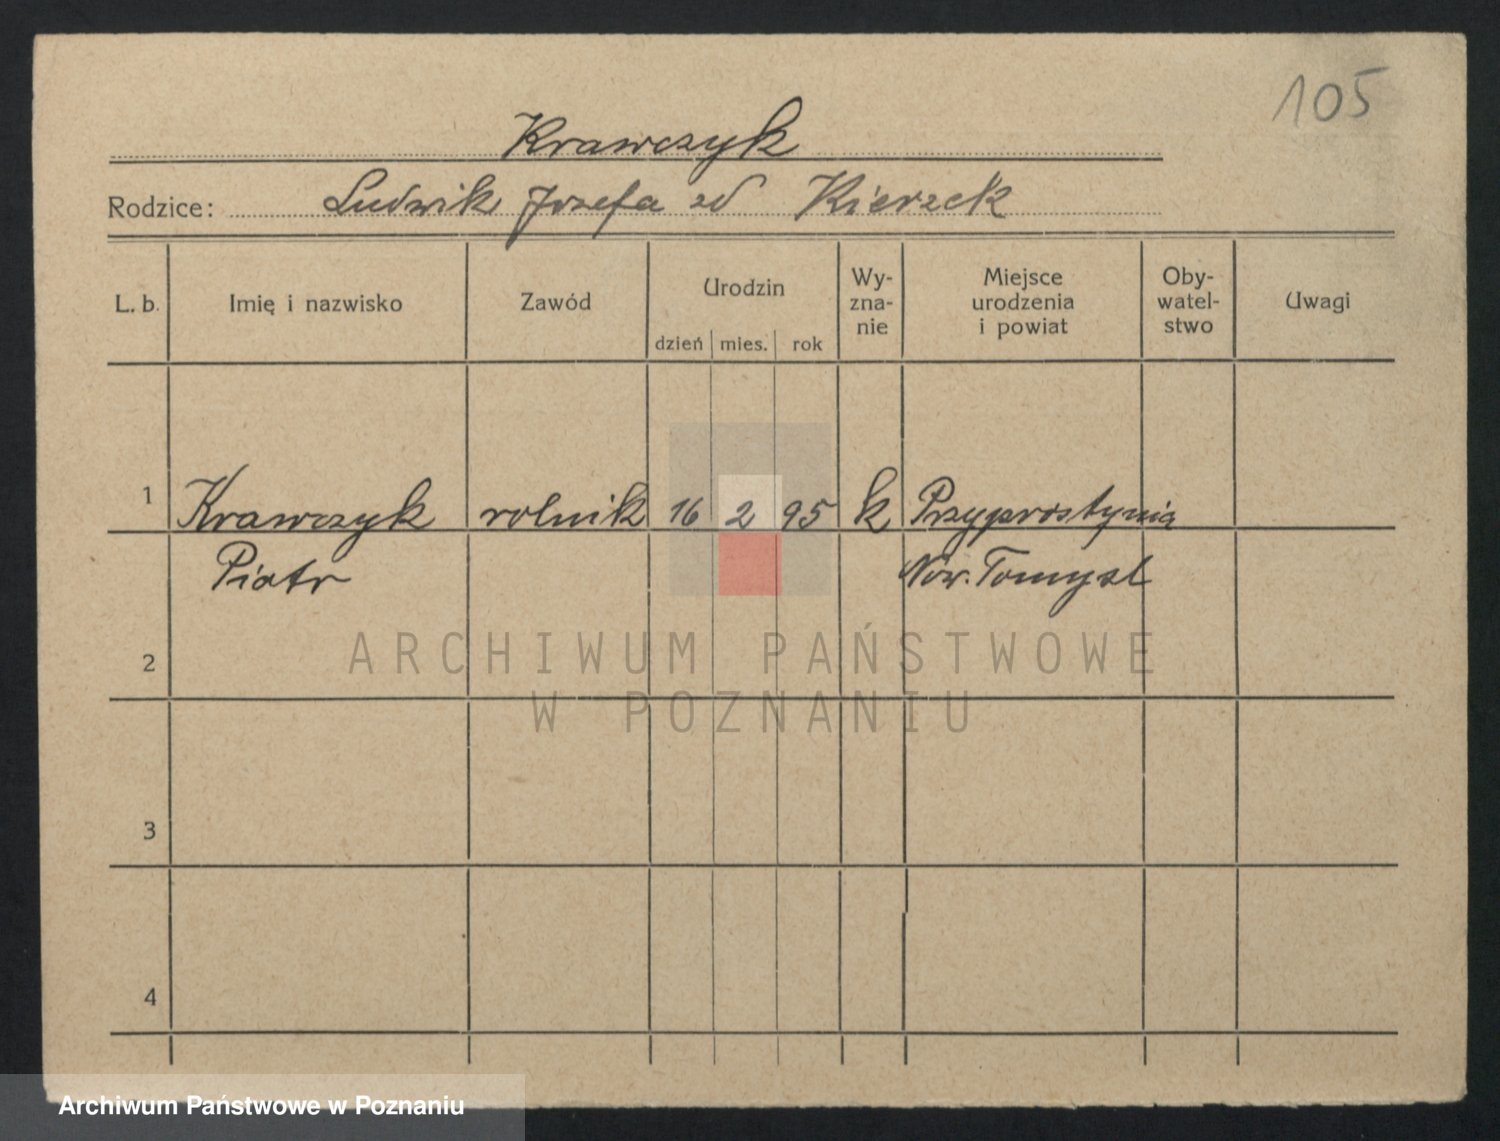 105
Krawczyk
Rodzice: Ludwik Jozefa zd Kierzek
L. b. Imię i nazwisko Zawód Urodzin dzień mies. rok Wy-zna-nie Miejsce urodzenia i powiat Oby-watel-stwo Uwagi
1 Krawczyk rolnik 16 2 95 k Przyprostynia
Piotr Now. Tomysl
2
ARCHIWUM PAŃSTWOWE
W POZNANIU
3
4
Archiwum Państwowe w Poznaniu